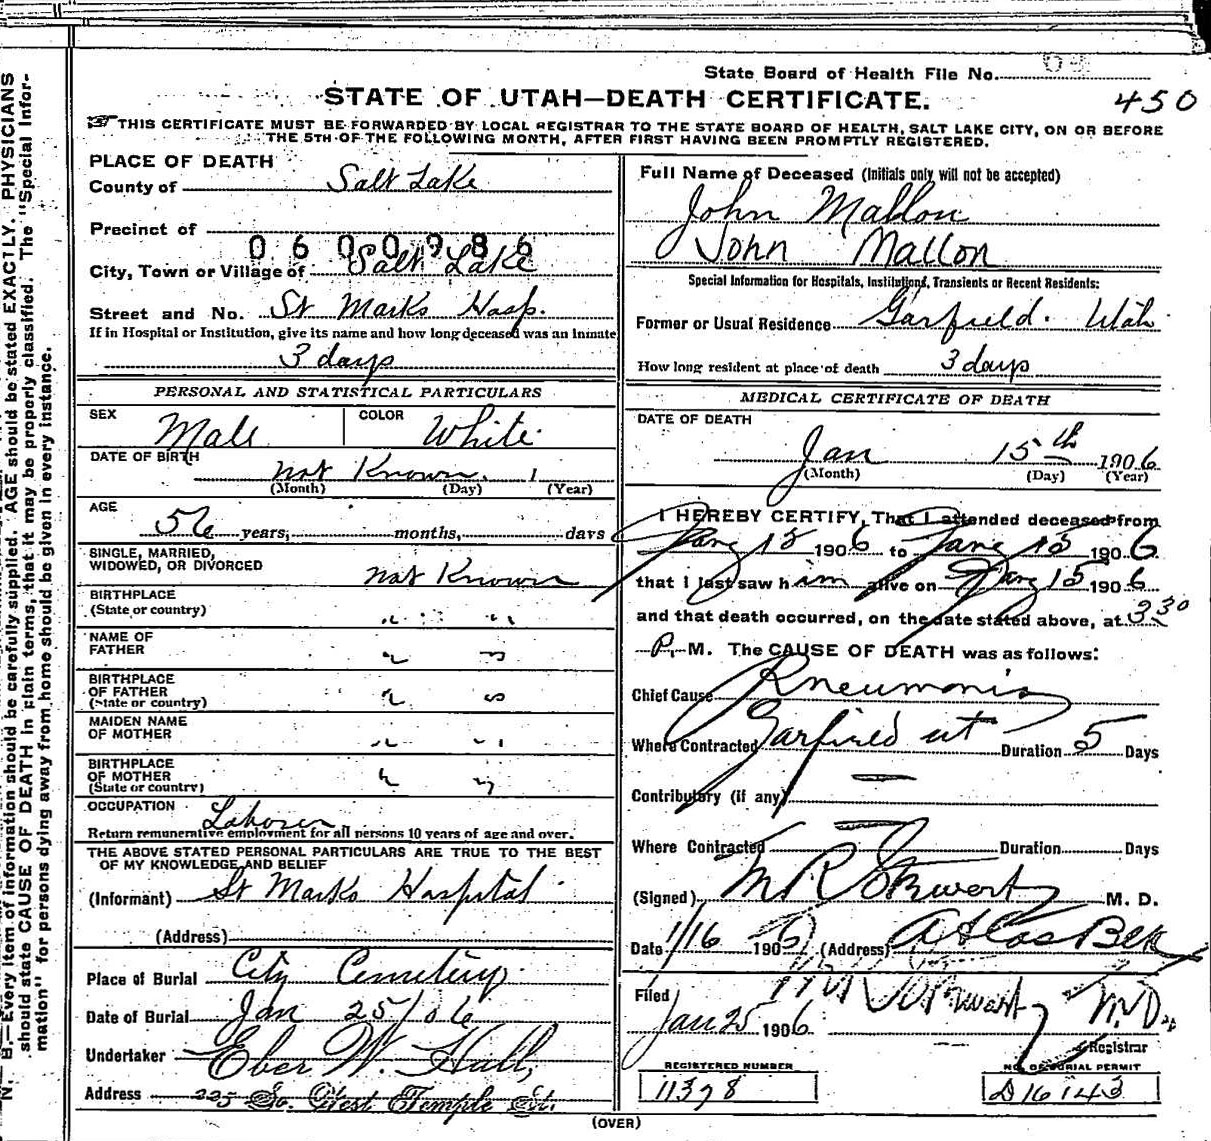 State Board of Health File No.
450
STATE OF UTAH—DEATH CERTIFICATE.
THIS CERTIFICATE MUST BE FORWARDED BY LOCAL REGISTRAR TO THE STATE BOARD OF HEALTH, SALT LAKE CITY, ON OR BEFORE
THE 5TH OF THE FOLLOWING MONTH, AFTER FIRST HAVING BEEN PROMPTLY REGISTERED.
N. B.—Every item of information should be carefully supplied. AGE should be stated EXACTLY. PHYSICIANS
should state CAUSE OF DEATH in plain terms, that it may be properly classified. The "Special Infor-
mation" for persons dying away from home should be given in every instance.
PLACE OF DEATH
County of Salt Lake
Precinct of
0600986
City, Town or Village of Salt Lake
Street and No. St Marks Hosp.
If in Hospital or Institution, give its name and how long deceased was an inmate
3 days
PERSONAL AND STATISTICAL PARTICULARS
SEX Male COLOR White
DATE OF BIRTH not Known. 1
(Month) (Day) (Year)
AGE
56 years, months, days
SINGLE, MARRIED,
WIDOWED, OR DIVORCED not Known
BIRTHPLACE
(State or country) " "
NAME OF
FATHER " "
BIRTHPLACE
OF FATHER
(State or country) " "
MAIDEN NAME
OF MOTHER " "
BIRTHPLACE
OF MOTHER
(State or country) " "
OCCUPATION Laborer
Return remunerative employment for all persons 10 years of age and over.
THE ABOVE STATED PERSONAL PARTICULARS ARE TRUE TO THE BEST
OF MY KNOWLEDGE AND BELIEF
(Informant) St Marks Hospital
(Address)
Place of Burial City Cemetery
Date of Burial Jan 25/06
Undertaker Eber W. Hall,
Address 225 So. West Temple St.
Full Name of Deceased (Initials only will not be accepted)
John Mallon
John Mallon
Special Information for Hospitals, Institutions, Transients or Recent Residents:
Former or Usual Residence Garfield. Utah
How long resident at place of death 3 days
MEDICAL CERTIFICATE OF DEATH
DATE OF DEATH
Jan 15th 1906
(Month) (Day) (Year)
I HEREBY CERTIFY, That I attended deceased from
1906 to Jany 15 1906
that I last saw him alive on Jany 15 1906
and that death occurred, on the date stated above, at 3 30
P. M. The CAUSE OF DEATH was as follows:
Chief Cause Pneumonia
Where Contracted Garfield ut Duration 5 Days
Contributory (if any) —
Where Contracted — Duration Days
(Signed) M. D.
Date 1/16 1906 (Address) Atlas Blk
Filed
Jan 25 1906 M.D.
Registrar
REGISTERED NUMBER
11378
NO. OF BURIAL PERMIT
D16143
(OVER)